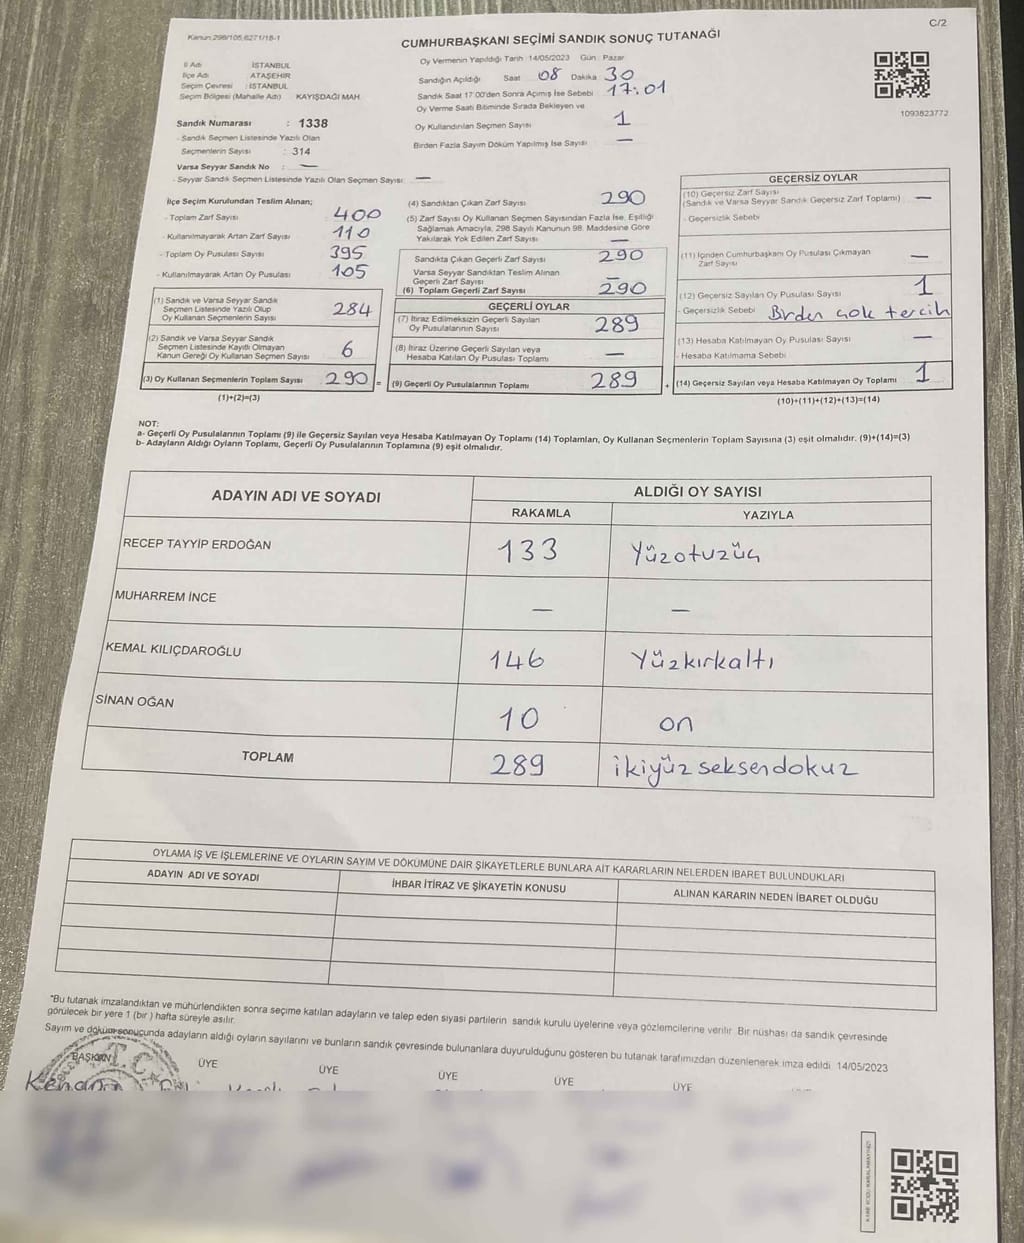 C/2
Kanun:298/105,6271/18-1
CUMHURBAŞKANI SEÇİMİ SANDIK SONUÇ TUTANAĞI
İl Adı İSTANBUL
İlçe Adı ATAŞEHİR
Seçim Çevresi : İSTANBUL
Seçim Bölgesi (Mahalle Adı) KAYIŞDAĞI MAH.
Sandık Numarası : 1338
- Sandık Seçmen Listesinde Yazılı Olan
Seçmenlerin Sayısı : 314
Varsa Seyyar Sandık No : —
- Seyyar Sandık Seçmen Listesinde Yazılı Olan Seçmen Sayısı: —
Oy Vermenin Yapıldığı Tarih 14/05/2023 Gün Pazar
Sandığın Açıldığı Saat 08 Dakika 30
Sandık Saat 17:00'den Sonra Açımış İse Sebebi 17:01
Oy Verme Saati Bitiminde Sırada Bekleyen ve
Oy Kullandırılan Seçmen Sayısı 1
Birden Fazla Sayım Döküm Yapılmış İse Sayısı —
1093823772
İlçe Seçim Kurulundan Teslim Alınan;
- Toplam Zarf Sayısı 400
- Kullanılmayarak Artan Zarf Sayısı 110
- Toplam Oy Pusulası Sayısı 395
- Kullanılmayarak Artan Oy Pusulası 105
(1) Sandık ve Varsa Seyyar Sandık
Seçmen Listesinde Yazılı Olup
Oy Kullanan Seçmenlerin Sayısı 284
(2) Sandık ve Varsa Seyyar Sandık
Seçmen Listesinde Kayıtlı Olmayan
Kanun Gereği Oy Kullanan Seçmen Sayısı 6
(3) Oy Kullanan Seçmenlerin Toplam Sayısı 290 =
(1)+(2)=(3)
(4) Sandıktan Çıkan Zarf Sayısı 290
(5) Zarf Sayısı Oy Kullanan Seçmen Sayısından Fazla İse, Eşitliği
Sağlamak Amacıyla, 298 Sayılı Kanunun 98. Maddesine Göre
Yakılarak Yok Edilen Zarf Sayısı —
Sandıkta Çıkan Geçerli Zarf Sayısı 290
Varsa Seyyar Sandıktan Teslim Alınan
Geçerli Zarf Sayısı —
(6) Toplam Geçerli Zarf Sayısı 290
GEÇERLİ OYLAR
(7) İtiraz Edilmeksizin Geçerli Sayılan
Oy Pusulalarının Sayısı 289
(8) İtiraz Üzerine Geçerli Sayılan veya
Hesaba Katılan Oy Pusulası Toplamı —
(9) Geçerli Oy Pusulalarının Toplamı 289 +
GEÇERSİZ OYLAR
(10) Geçersiz Zarf Sayısı
(Sandık ve Varsa Seyyar Sandık Geçersiz Zarf Toplamı) —
- Geçersizlik Sebebi
(11) İçinden Cumhurbaşkanı Oy Pusulası Çıkmayan
Zarf Sayısı —
(12) Geçersiz Sayılan Oy Pusulası Sayısı 1
- Geçersizlik Sebebi Birden çok tercih
(13) Hesaba Katılmayan Oy Pusulası Sayısı —
- Hesaba Katılmama Sebebi
(14) Geçersiz Sayılan veya Hesaba Katılmayan Oy Toplamı 1
(10)+(11)+(12)+(13)=(14)
NOT:
a- Geçerli Oy Pusulalarının Toplamı (9) ile Geçersiz Sayılan veya Hesaba Katılmayan Oy Toplamı (14) Toplamları, Oy Kullanan Seçmenlerin Toplam Sayısına (3) eşit olmalıdır. (9)+(14)=(3)
b- Adayların Aldığı Oyların Toplamı, Geçerli Oy Pusulalarının Toplamına (9) eşit olmalıdır.
ADAYIN ADI VE SOYADI ALDIĞI OY SAYISI
RAKAMLA YAZIYLA
RECEP TAYYİP ERDOĞAN 133 Yüzotuzüç
MUHARREM İNCE — —
KEMAL KILIÇDAROĞLU 146 Yüzkırkaltı
SİNAN OĞAN 10 on
TOPLAM 289 ikiyüzseksendokuz
OYLAMA İŞ VE İŞLEMLERİNE VE OYLARIN SAYIM VE DÖKÜMÜNE DAİR ŞİKAYETLERLE BUNLARA AİT KARARLARIN NELERDEN İBARET BULUNDUKLARI
ADAYIN ADI VE SOYADI İHBAR İTİRAZ VE ŞİKAYETİN KONUSU ALINAN KARARIN NEDEN İBARET OLDUĞU
*Bu tutanak imzalandıktan ve mühürlendikten sonra seçime katılan adayların ve talep eden siyasi partilerin sandık kurulu üyelerine veya gözlemcilerine verilir. Bir nüshası da sandık çevresinde
görülecek bir yere 1 (bir) hafta süreyle asılır.
Sayım ve döküm sonucunda adayların aldığı oyların sayılarını ve bunların sandık çevresinde bulunanlara duyurulduğunu gösteren bu tutanak tarafımızdan düzenlenerek imza edildi. 14/05/2023
BAŞKAN ÜYE ÜYE ÜYE ÜYE ÜYE
T.C
Kenan